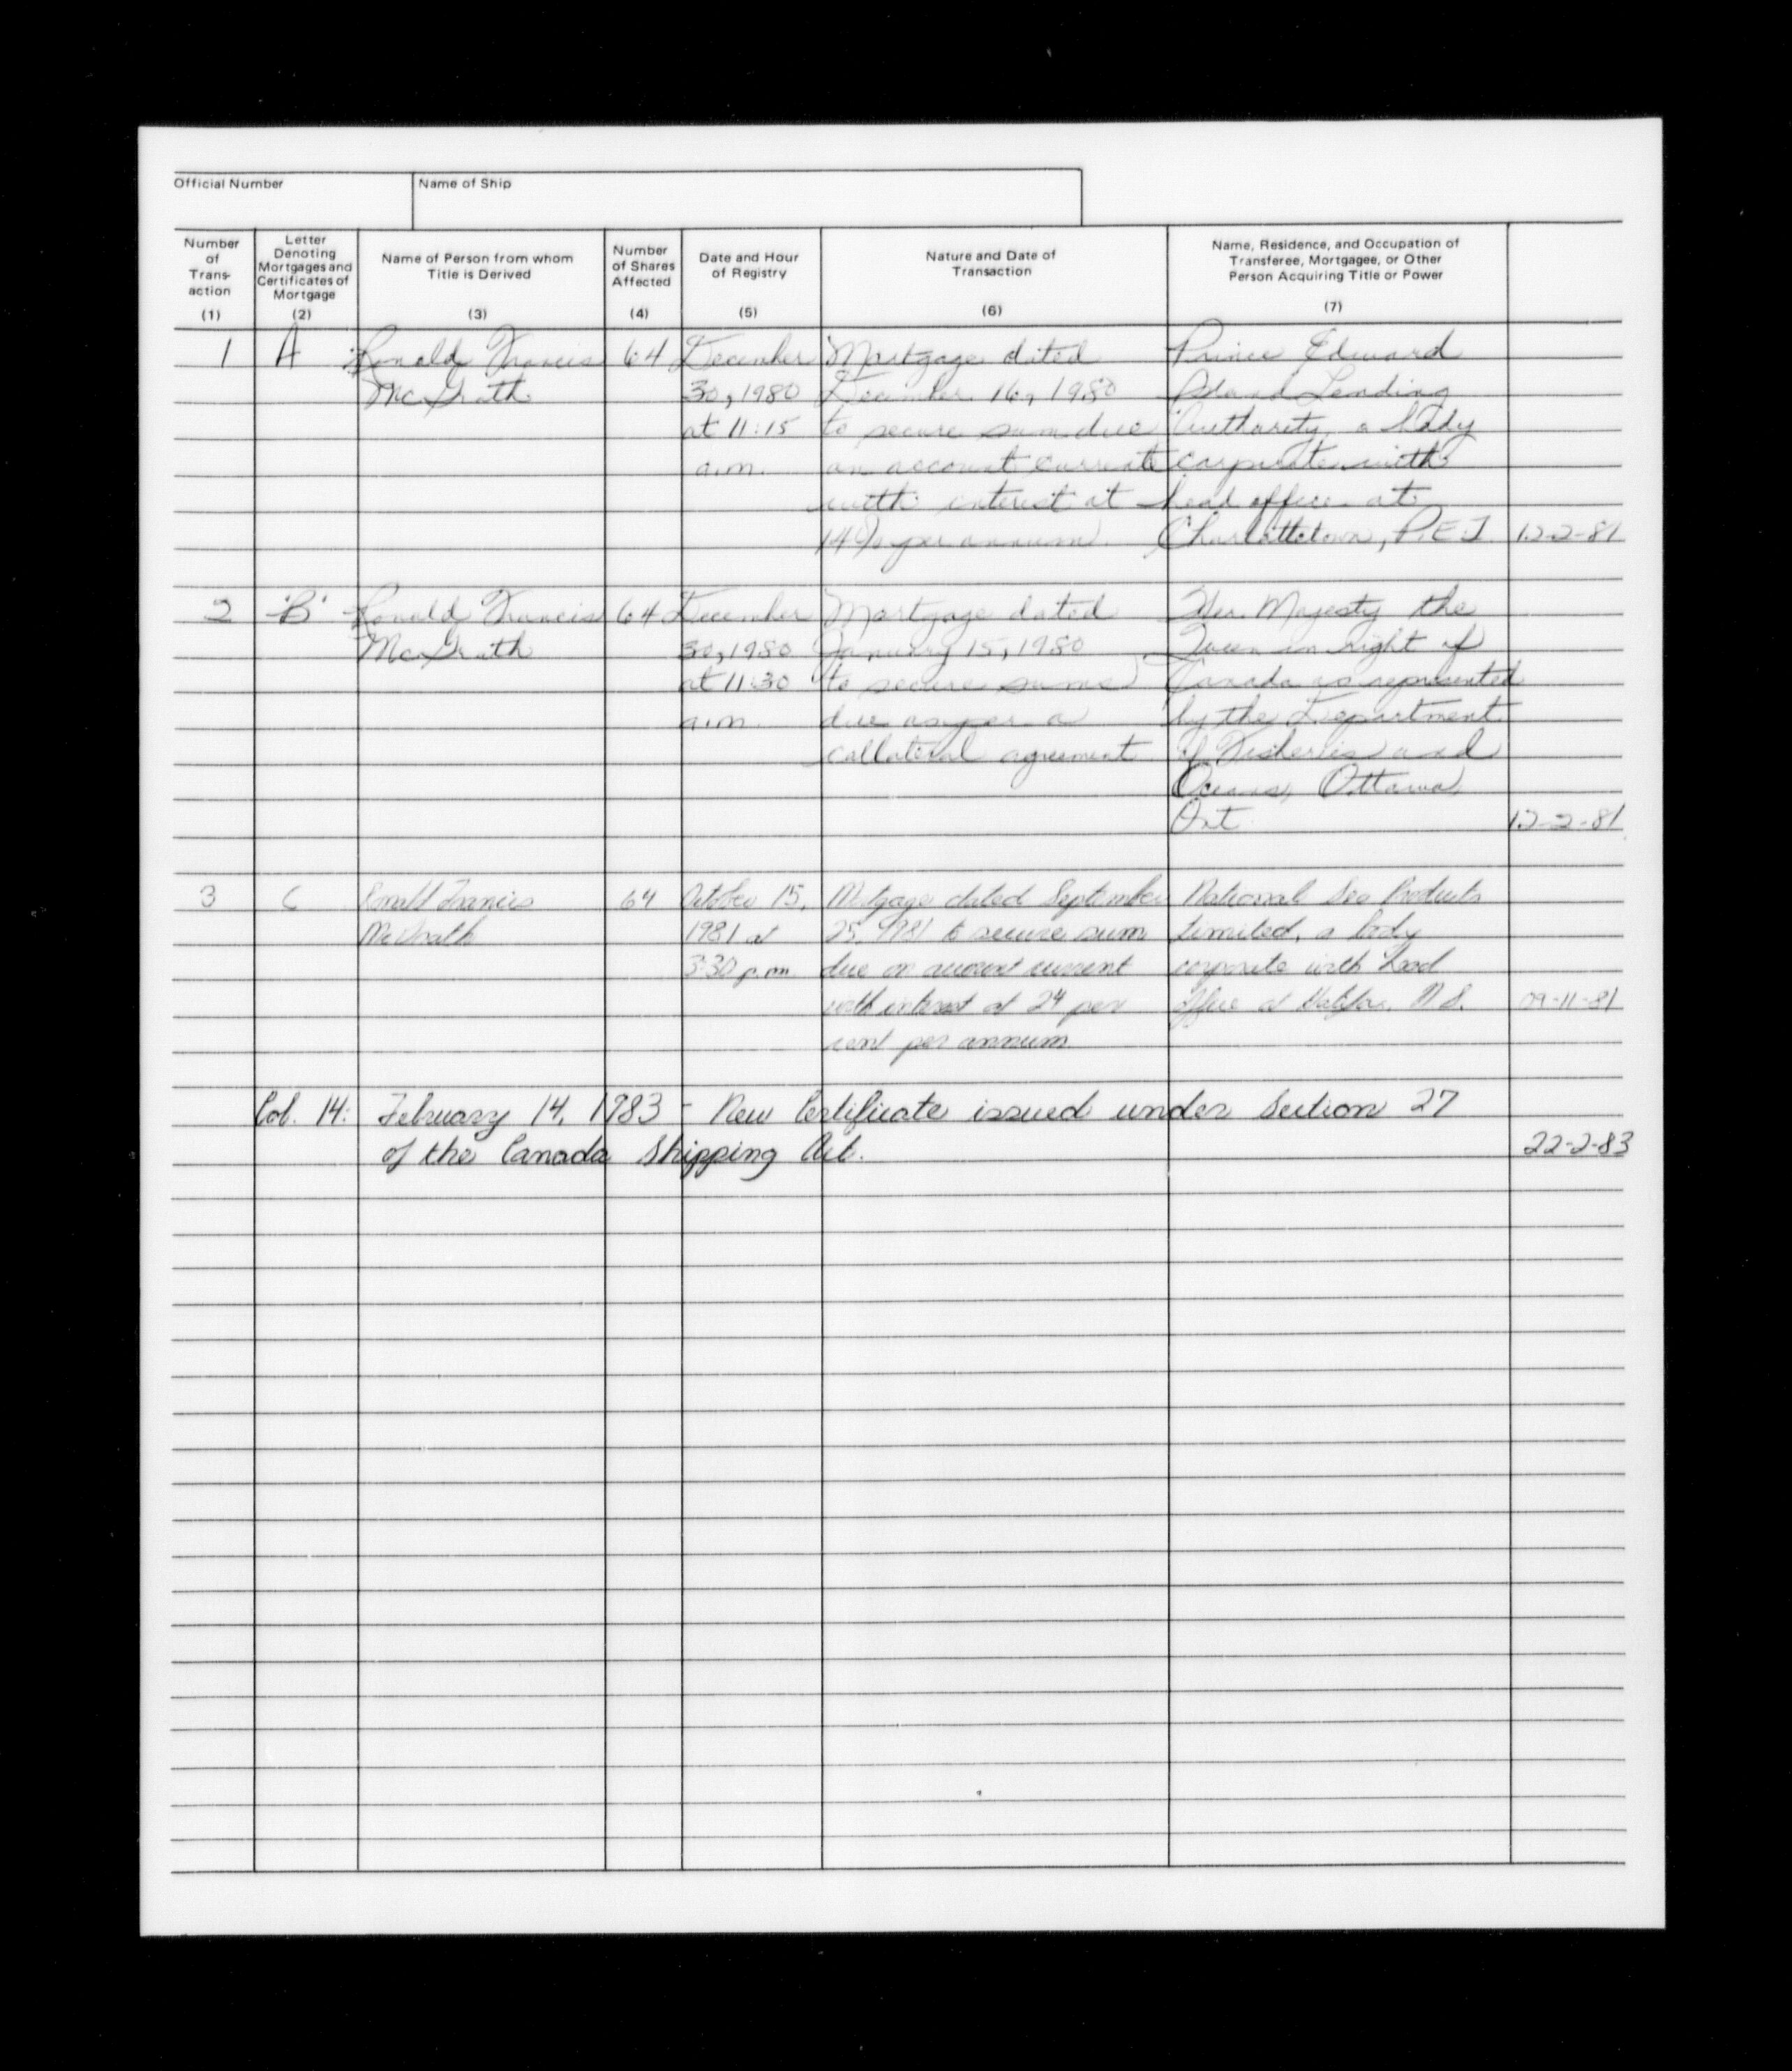 Official Number
Name of Ship
Number of Trans-action (1)
Letter Denoting Mortgages and Certificates of Mortgage (2)
Name of Person from whom Title is Derived (3)
Number of Shares Affected (4)
Date and Hour of Registry (5)
Nature and Date of Transaction (6)
Name, Residence, and Occupation of Transferee, Mortgagee, or Other Person Acquiring Title or Power (7)
1 A Ronald Francis 64 December Mortgage dated Prince Edward
McGrath 30, 1980 December 16, 1980 Island Lending
at 11:15 to secure sum due Authority, a body
a.m. on account current corporate with
with interest at head office at
14% per annum. Charlottetown, P.E.I. 12-2-81
2 "B" Ronald Francis 64 December Mortgage dated Her Majesty the
McGrath 30, 1980 January 15, 1980 Queen in right of
at 11:30 to secure sums Canada as represented
a.m. due as per a by the Department
collateral agreement of Fisheries and
Oceans, Ottawa,
Ont. 12-2-81
3 C Ronald Francis 64 October 15, Mortgage dated September National Sea Products
McGrath 1981 at 25, 1981 to secure sum Limited, a body
3:30 p.m due on account current corporate with head
with interest at 24 per office at Halifax, N.S. 09-11-81
cent per annum.
Col. 14: February 14, 1983 - New Certificate issued under Section 27
of the Canada Shipping Act. 22-2-83